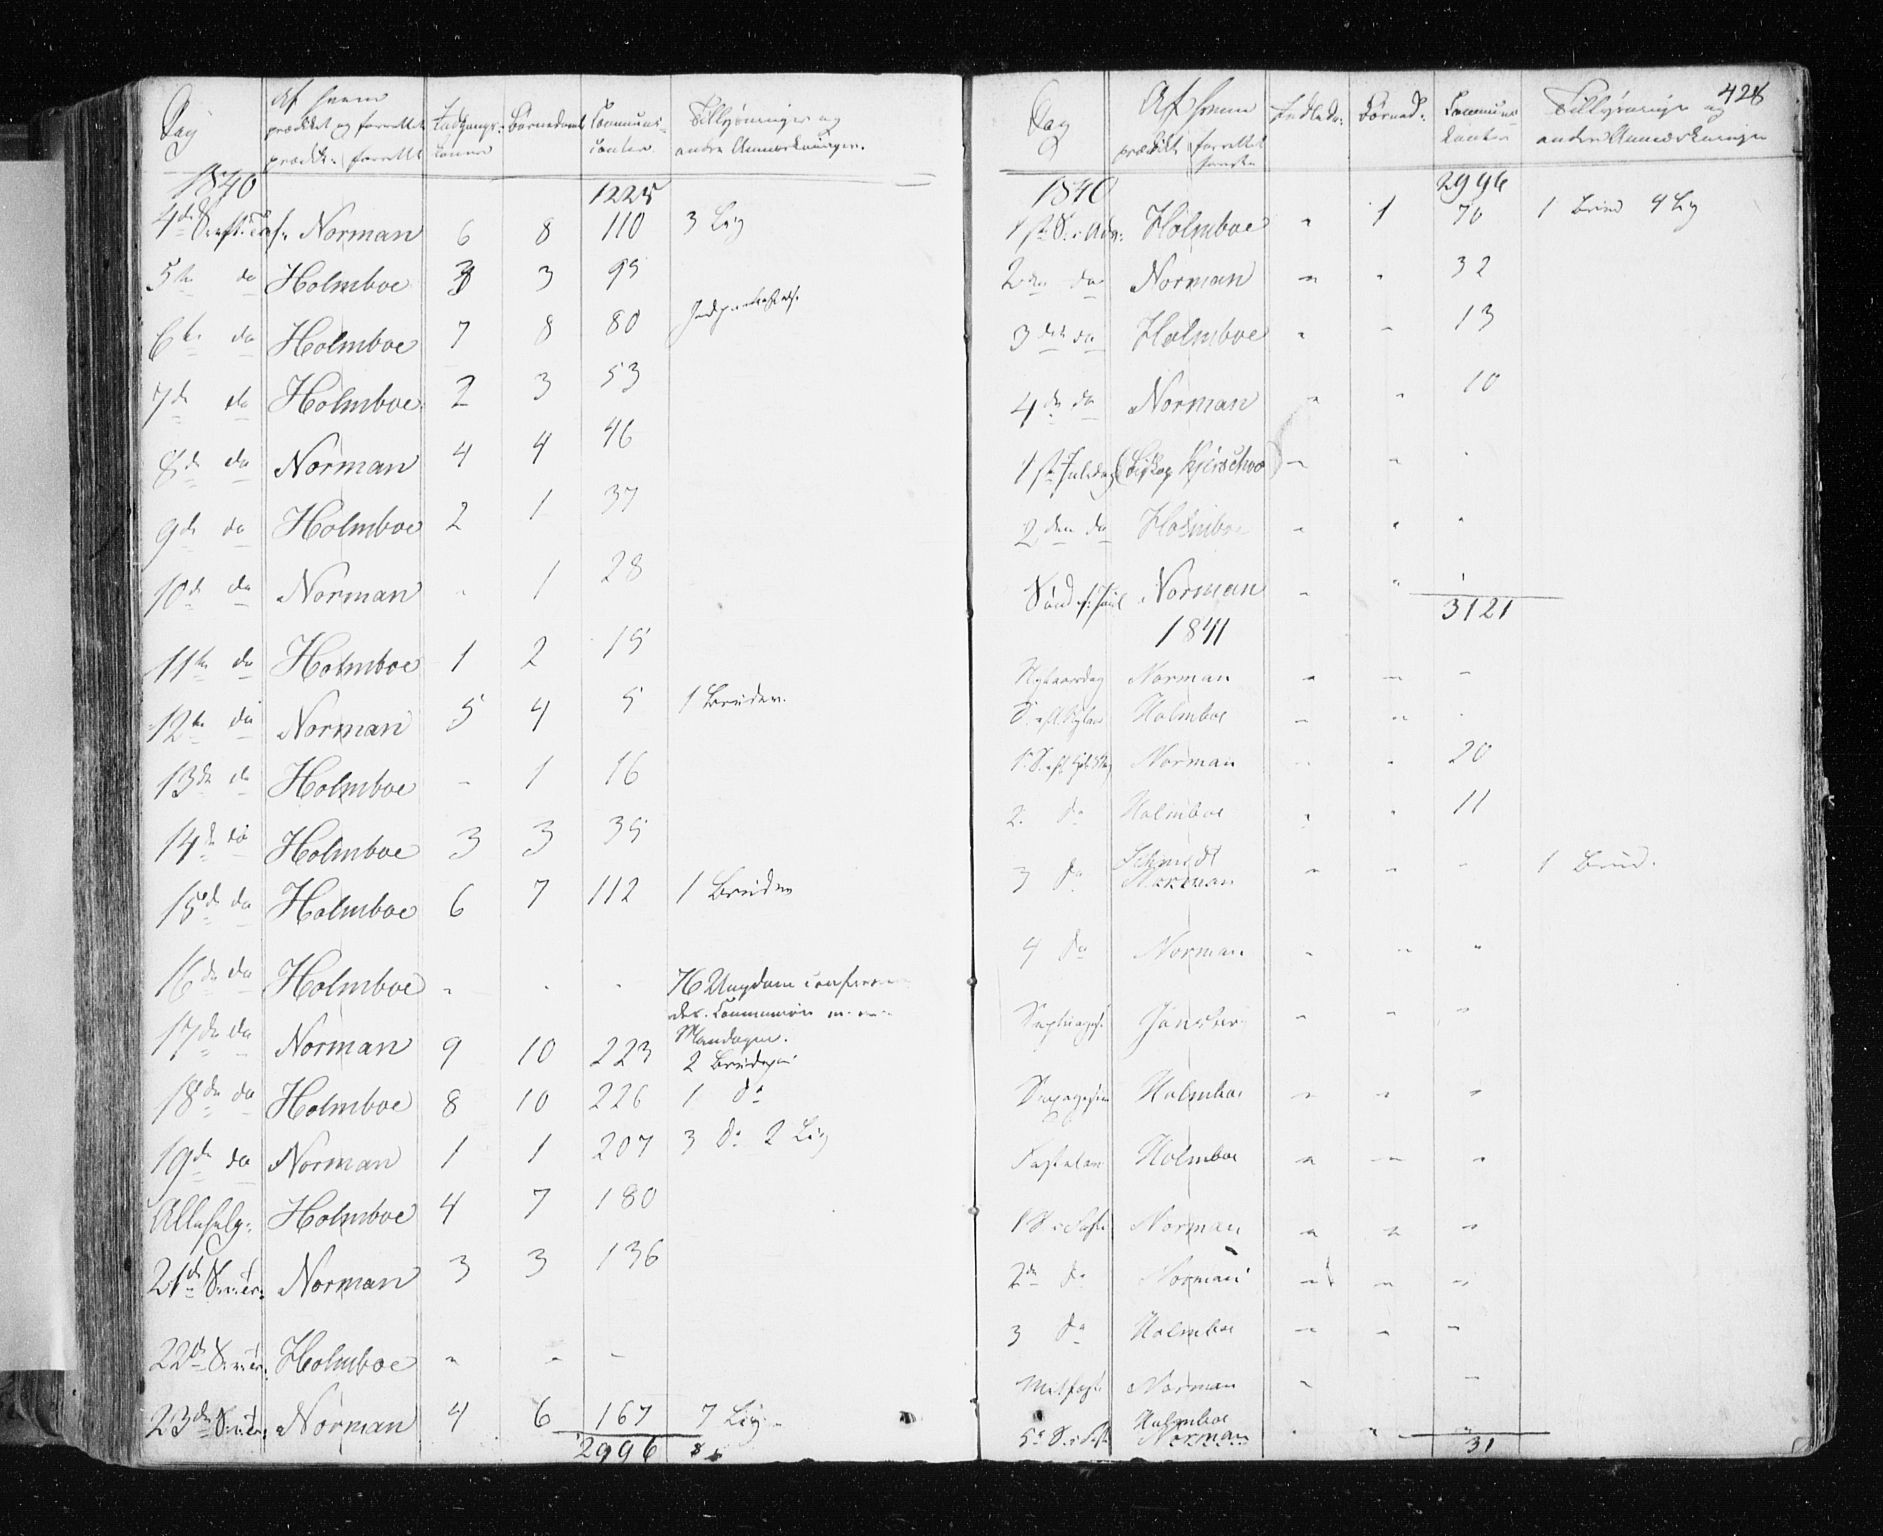 Dag
Af hvem
prædiket og forrettet
prædik: forrettet
Indgangs-
konere
Børnedaab
Communi-
canter
Tillysninger og
andre Anmærkninger.
1840
1225
4de S. eft. Norman 6 8 110 3 Lig
5te do Holmboe 3 3 95
6te do Holmboe 7 8 80
7de do Holmboe 2 3 53
8de do Norman 4 4 46
9de do Holmboe 2 1 37
10de do Norman - 1 28
11te do Holmboe 1 2 15
12te do Norman 5 4 5 1 Brudev.
13de do Holmboe - 1 16
14de do Holmboe 3 3 35
15de do Holmboe 6 7 112 1 Brudev
16de do Holmboe - - - 76 Ungdom
Communion
Mandagen.
17de do Norman 9 10 223 2 Brudepar
18de do Holmboe 8 10 226 1 do
19de do Norman 1 1 207 3 do 2 Lig
Allehelg: Holmboe 4 7 180
21de S. Norman 3 3 136
22de S. Holmboe - - -
23de S. Norman 4 6 167 7 Lig
2996
428
Dag
Af hvem
prædiket forrettet
Indlede:
Børned:
Communi-
kanter
Tillysninger og
andre Anmærkninger
1840
2996
1ste S. i Adv: Holmboe " 1 70 1 Brud 4 Lig
2den do Norman " " 32
3die do Holmboe " " 13
4de do Norman " " 10
1ste Juledag (Biskop Kjerschow) " " "
2den do Holmboe " " "
Sønd. f. Juul Norman " "
3121
1841
Nytaarsdag Norman " " "
S. eft. Nytaar Holmboe " " "
1. S. eft. Norman " " 20
2. do Holmboe " " 11
Schmidt
3 do Norman " " " 1 Brud.
4 do Norman " " "
Septuages. " " "
Sexagesim Holmboe " " "
Fastelavn Holmboe " " "
1 S. i Faste Norman " " "
2de do Norman " " "
3 do Holmboe " " "
Midfaste Norman " "
Holmboe
5te S. i Faste Norman " " "
31